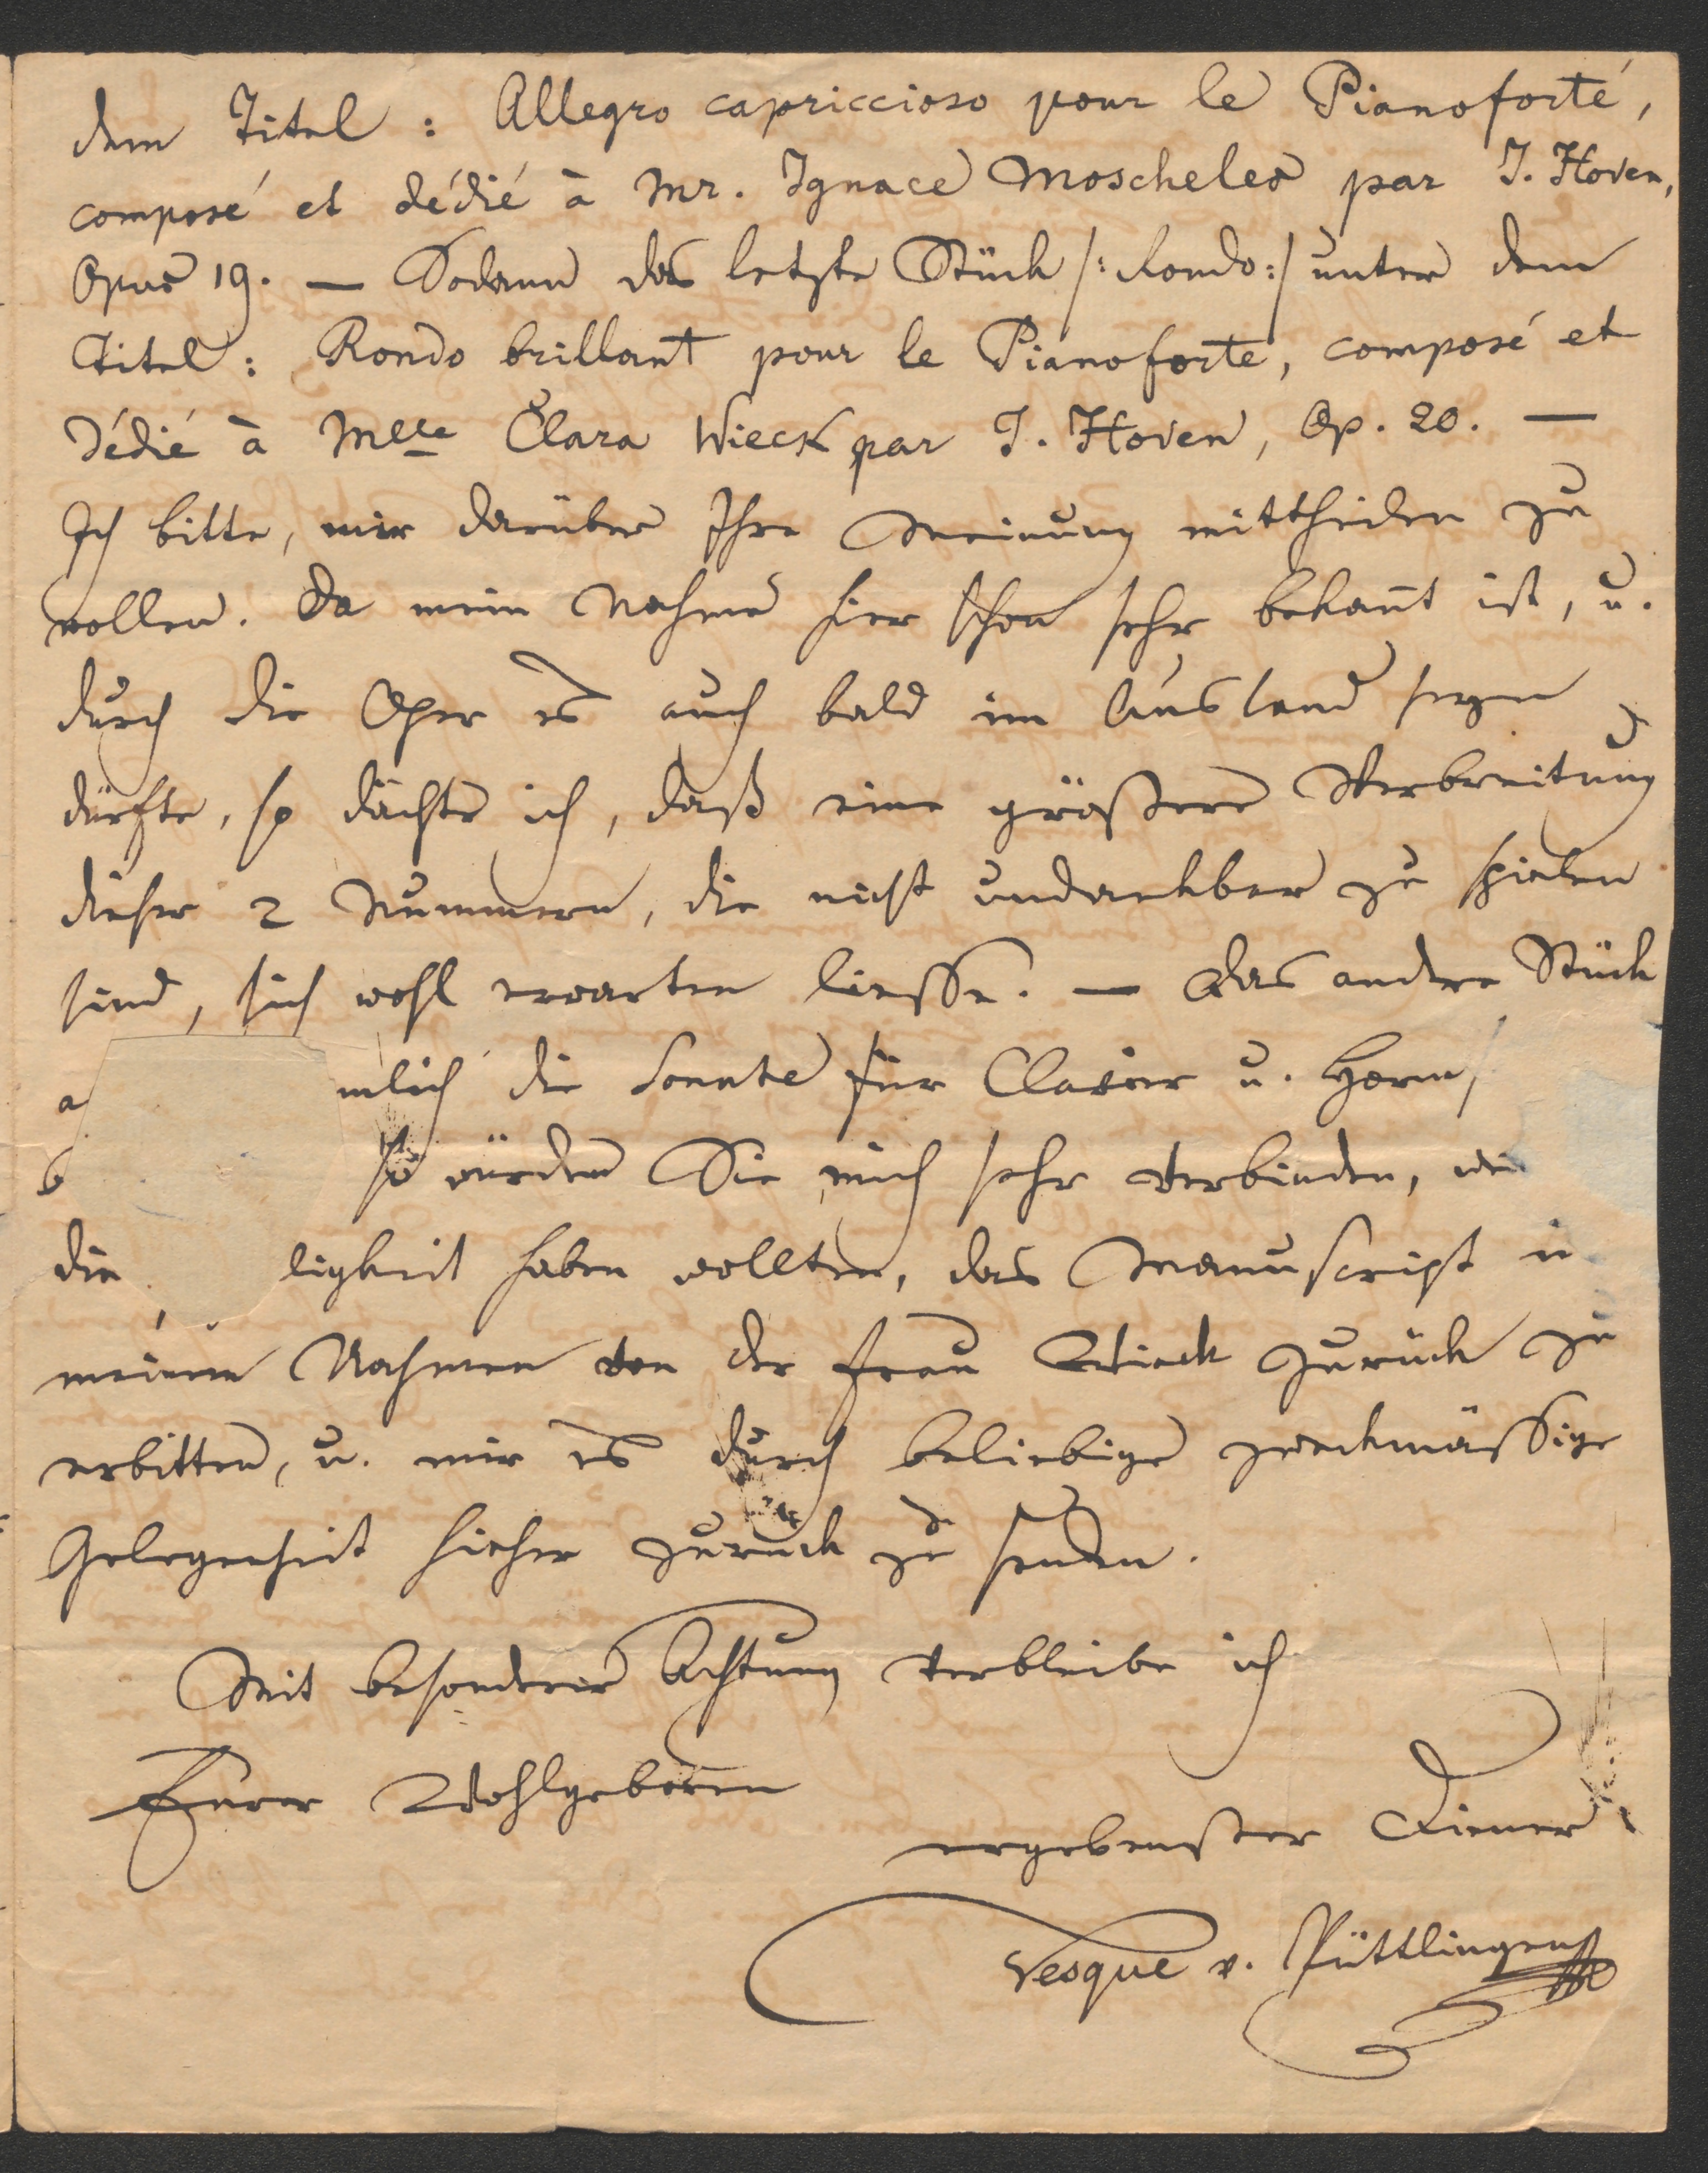 dem Titel: Allegro capriccioso pour le Pianoforté,
composé et dédié à Mr. Ignace Moscheles par J. Hoven,
Opus 19. — Sodann das letzte Stück /: Rondo :/ unter dem
Titel: Rondo brillant pour le Pianoforte, composé et
dédié à Mlle Clara Wieck par J. Hoven, Op. 20. —
Ich bitte, mir darüber Ihre Meinung mittheilen zu
wollen. Da mein Nahme hier schon sehr bekan̄t ist, u.
durch die Oper es auch bald im Ausland seyn
dürfte, so dächte ich, daß eine größere Verbreitung
dieser 2 Nummern, die nicht undankbar zu spielen
sind, sich wohl erwarten liesse. — Das andere Stück
a mlich die Sonate für Clavier u. Horn/
b so würden Sie mich sehr verbinden, we
die ligkeit haben wollten, das Manuscript i
meinem Nahmen von der Frau Wieck zurück zu
erbitten, u. mir es durch beliebige zweckmässige
Gelegenheit hieher zurück zu senden.
Mit besonderer Achtung verbleibe ich
Eurer Wohlgeboren
ergebenster Diener
Vesque v. Püttlingen